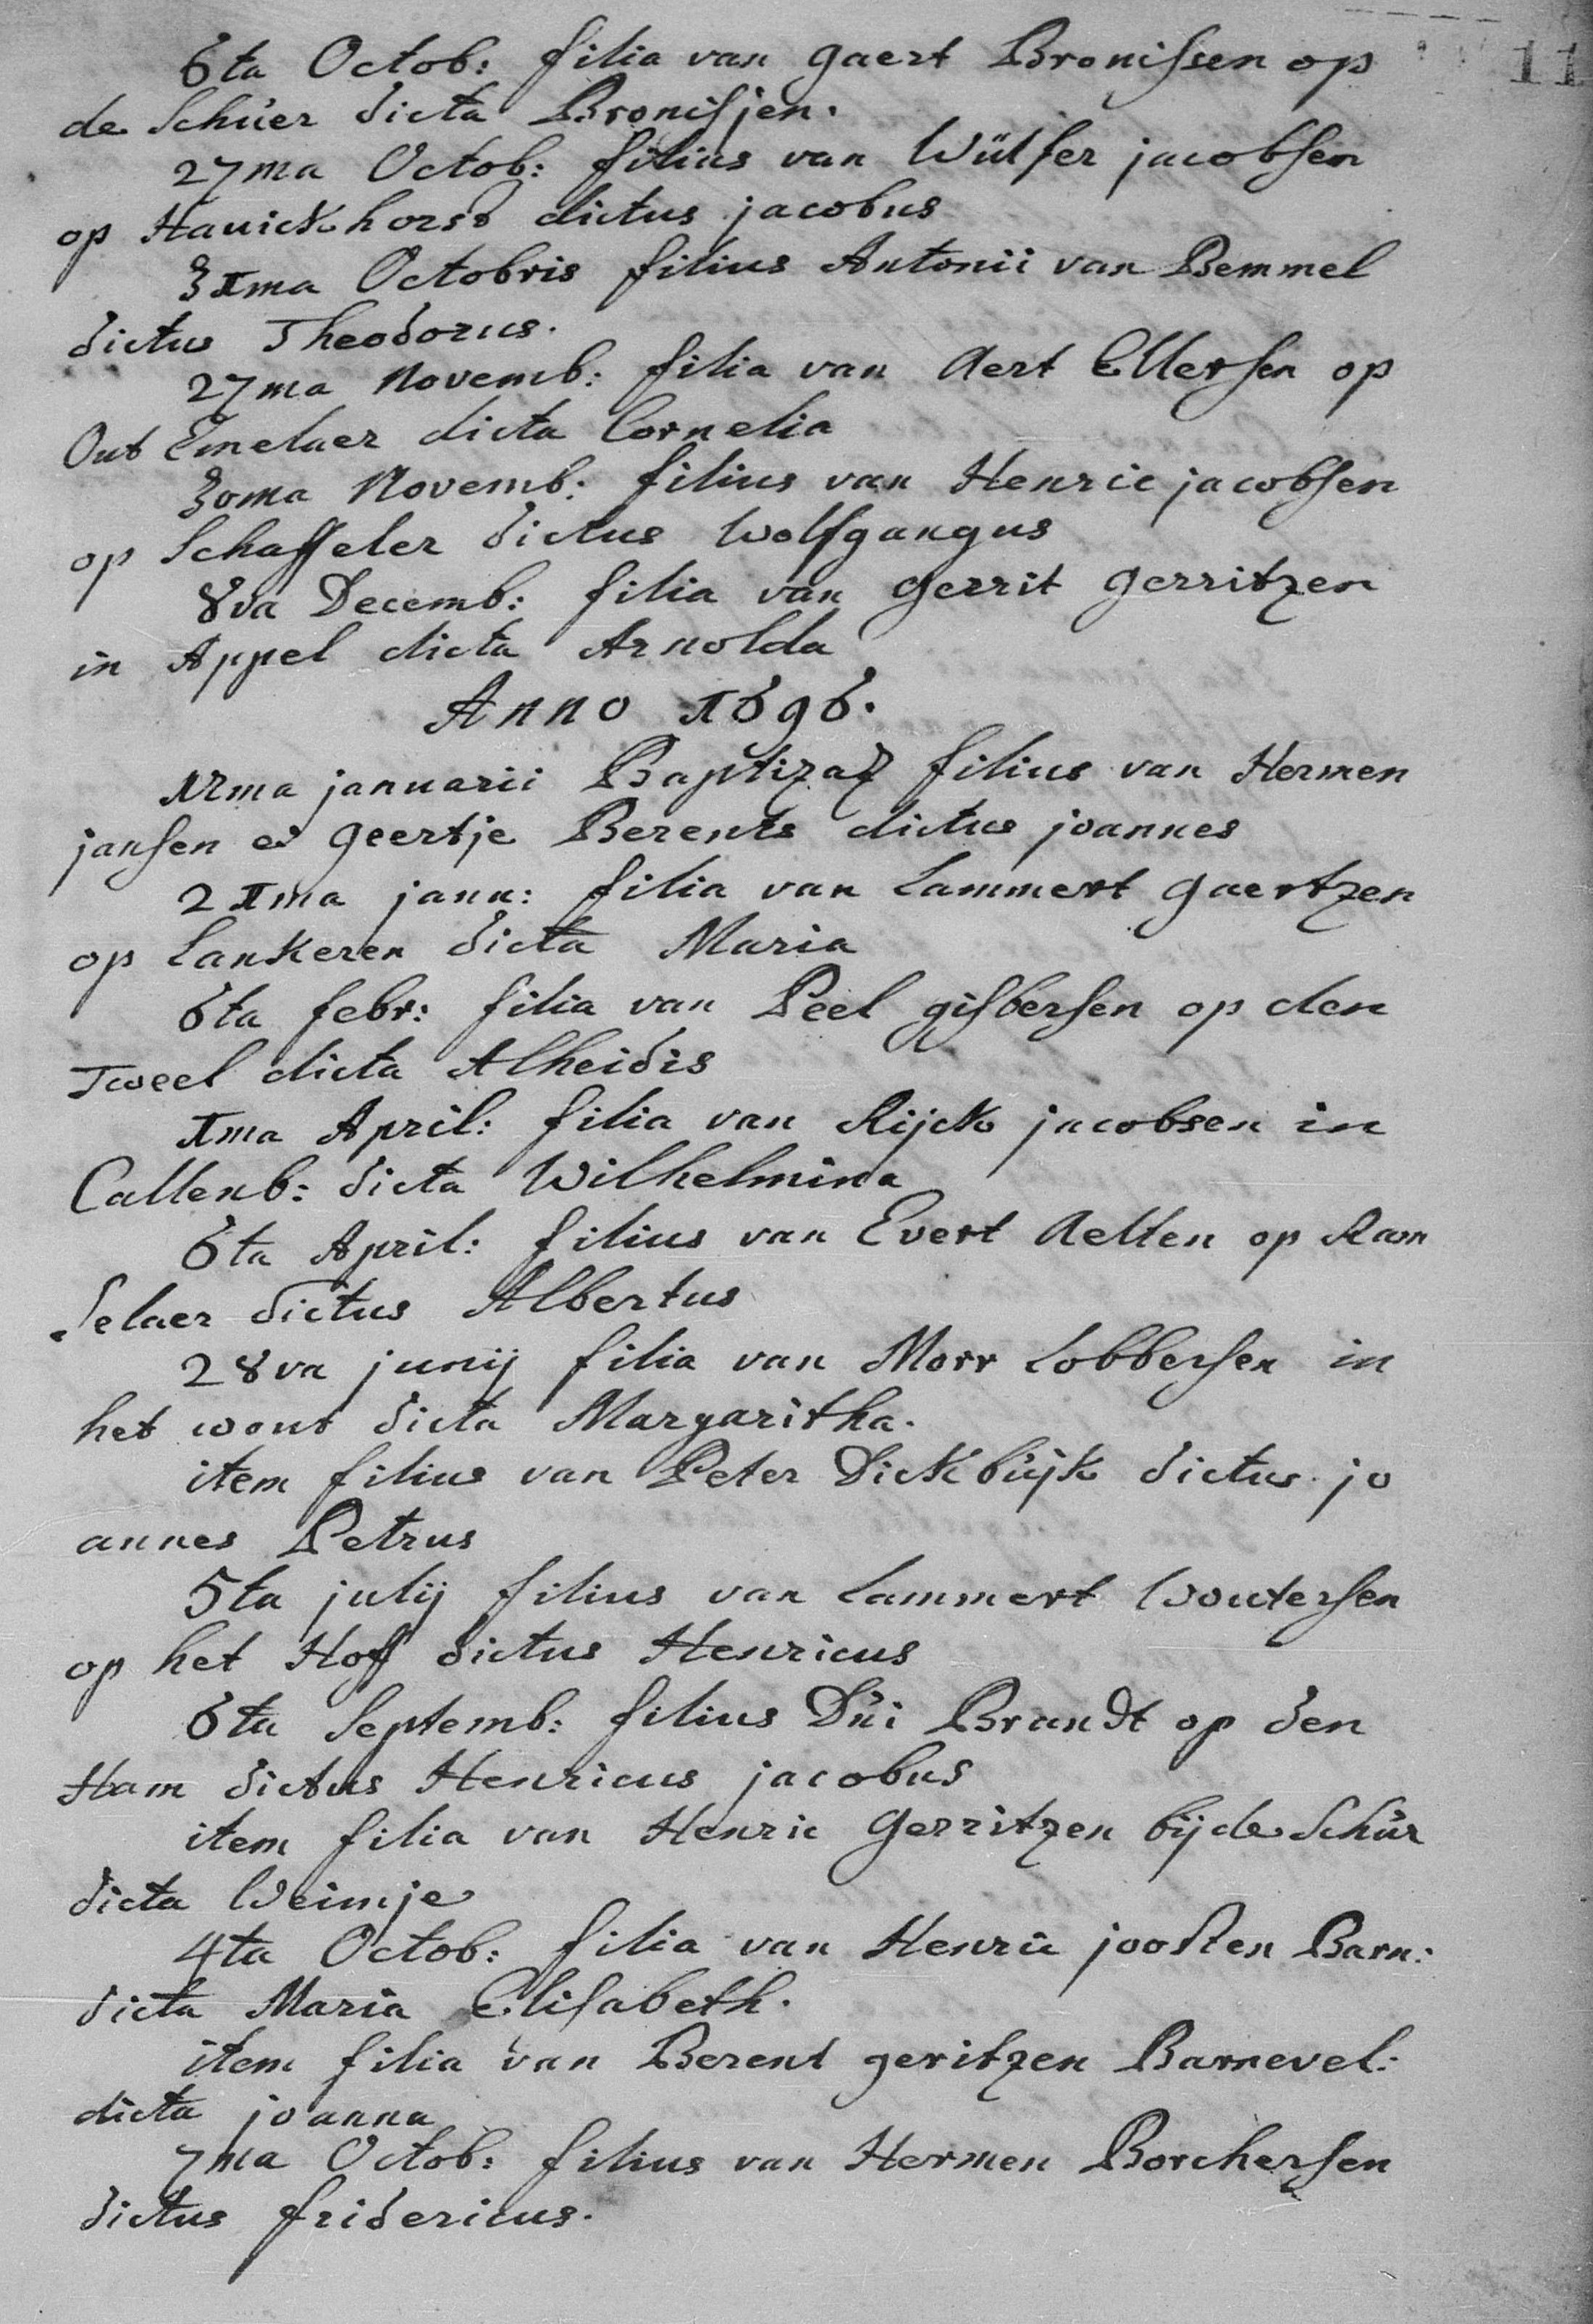 11
6ta Octob: filia van gaert Bronissen op
de Schuer dicta Bronisjen.
27ma Octob: filius van Wülfer jacobsen
op Hauickhorst dictus jacobus
31ma Octobris filius Antonii van Bemmel
dictus Theodorus.
27ma Novemb: filia van Aert Ellersen op
Out Emelaer dicta Cornelia
30ma Novemb: filius van Henric jacobsen
op Schaffeler dictus Wolfgangus
8va Decemb: filia van gerrit gerritzen
in Appel dicta Arnolda
Anno 1696.
12ma januarii Baptizat filius van Hermen
jansen et geertje Berents dictus joannes
21ma janu: filia van Lammert gaertzen
op Lankeren dicta Maria
6ta febr: filia van Peel gisbersen op den
Tweel dicta Alheidis
1ma April: filia van Rijck jacobsen in
Callenb: dicta Wilhelmina
6ta April: filius van Evert Aelten op Ram
selaer dictus Albertus
28va junij filia van Morr Lobbersen in
het wout dicta Margaritha.
item filius van Peter Dickbuijk dictus jo
annes Petrus
5ta julij filius van Lammert Woutersen
op het Hoff dictus Henricus
6ta Septemb: filius Dni Brandt op den
Ham dictus Henricus jacobus
item filia van Henric Gerritzen bij de Schur
dicta Weimje
4ta Octob: filia van Henric joosten Barn:
dicta Maria Elisabeth.
item filia van Berent geritzen Barnevel:
dicta joanna
7ma Octob: filius van Hermen Borchersen
dictus fridericus.